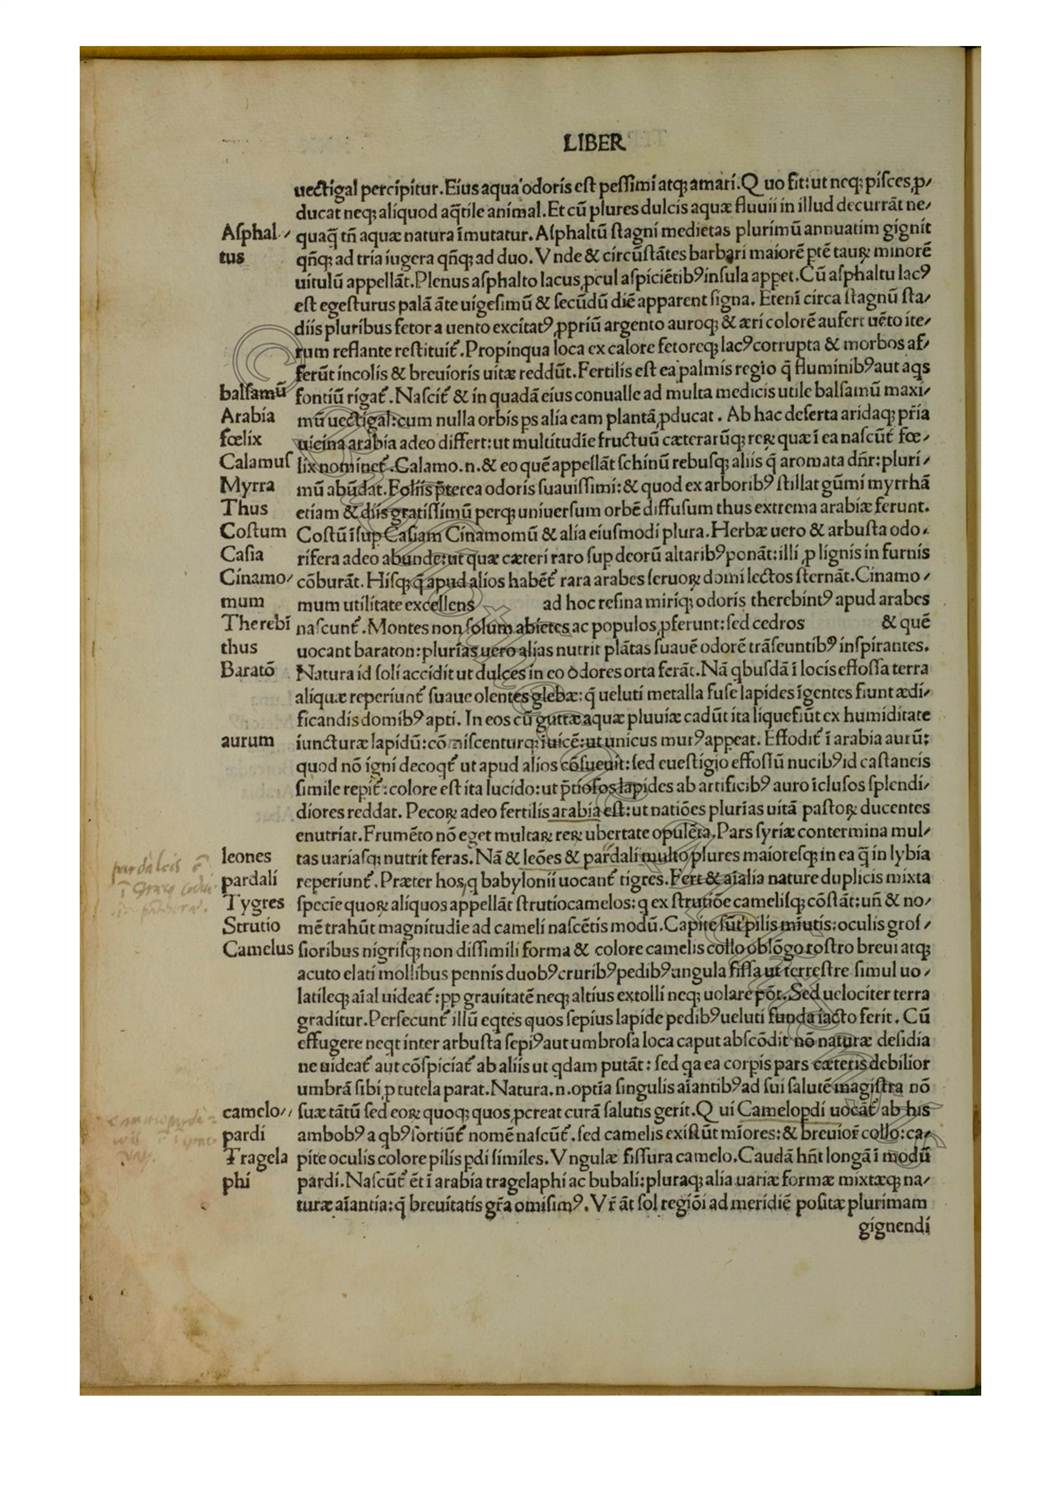 LIBER
uectigal percipitur. Eius aqua odoris est pessimi atq; amari. Q uo fit: ut neq; pisces ꝓ/
ducat neq; aliquod aq̃tile animal. Et cũ plures dulcis aquæ fluuii in illud decurrãt ne/
Asphal/ quaq̃ tñ aquæ natura ĩmutatur. Asphaltũ stagni medietas plurimũ annuatim gignit
tus qñq; ad tria iugera qñq; ad duo. V nde & circũstãtes barbari maiorẽ ptẽ tauꝝ minorẽ
uitulũ appellãt. Plenus asphalto lacus ꝓcul aspiciẽtibꝰ insula appet. Cũ asphaltu lacꝰ
est egesturus palã ãte uigesimũ & secũdũ diẽ apparent signa. Etenĩ circa stagnũ sta/
diis pluribus fetor a uento excitatꝰ ꝓpriũ argento auroq; & æri colorẽ aufert uẽto ite/
rum reflante restituit̃. Propinqua loca ex calore fetoreq; lacꝰ corrupta & morbos af/
ferũt incolis & breuioris uitæ reddũt. Fertilis est ea palmis regio q̃ fluminibꝰ aut aqs
balsamũ fontiũ rigat̃. Nascit̃ & in quadã eius conualle ad multa medicis utile balsamũ maxi/
Arabia mũ uectigal: cum nulla orbis ps alia eam plantã ꝓducat. Ab hac deserta aridaq; pr̃ia
fœlix uicina arabia adeo differt: ut multitudĩe fructuũ cæterarũq; reꝝ quæ ĩ ea nascũt̃ fœ/
Calamus lix nominet̃. Calamo. n. & eo quẽ appellãt schinũ rebusq; aliis q̃ aromata dñr: pluri/
Myrra mũ abũdat. Foliis p̃terea odoris suauissimi: & quod ex arboribꝰ stillat gũmi myrrhã
Thus etiam & diis gratissimũ perq; uniuersum orbẽ diffusum thus extrema arabiæ ferunt.
Costum Costũ ĩsup Casiam Cinamomũ & alia eiusmodi plura. Herbæ uero & arbusta odo/
Casia rifera adeo abunde: ut quæ cæteri raro sup deorũ altaribꝰ ponãt: illi ꝓ lignis in furnis
Cinamo/ cõburãt. Hisq; q̃ apud alios habẽt̃ rara arabes seruoꝝ domi lectos sternãt. Cinamo/
mum mum utilitate excellens ad hoc resina miriq; odoris therebintꝰ apud arabes
Therebĩ nascunt̃. Montes non solum abietes ac populos ꝓferunt: sed cedros & quẽ
thus uocant baraton: plurias uero alias nutrit plãtas suauẽ odorẽ trãseuntibꝰ inspirantes.
Baratõ Natura id soli accidit ut dulces in eo odores orta ferãt. Nã qbusdã ĩ locis effossa terra
aliquæ reperiunt̃ suaue olentes glebæ: q̃ ueluti metalla fuse lapides ĩgentes fiunt ædi/
ficandis domibꝰ apti. In eos cũ guttæ aquæ pluuiæ cadũt ita liquefiũt ex humiditate
aurum iuncturæ lapidũ: cõmiscenturq; ĩuicẽ: ut unicus murꝰ appeat. Effodit̃ ĩ arabia aurũ:
quod nõ igni decoqt̃ ut apud alios cõsueuit: sed euestigio effossũ nucibꝰ id castaneis
simile repit̃: colore est ita lucido: ut p̃tiosos lapides ab artificibꝰ auro ĩclusos splendi/
diores reddat. Pecoꝝ adeo fertilis arabia est: ut natiões plurias uitã pastoꝝ ducentes
enutriat. Frumẽto nõ eget multaꝝ reꝝ ubertate opulẽta. Pars syriæ contermina mul/
leones tas uariasq; nutrit feras. Nã & leões & pardali multo plures maioresq; in ea q̃ in lybia
pardali reperiunt̃. Præter hos, q babylonii uocant̃ tigres. Fert & aĩalia nature duplicis mixta
Tygres specie quoꝝ aliquos appellãt strutiocamelos: q ex strutiõe camelisq; cõstãt: uñ & no/
Strutio mẽ trahũt magnitudĩe ad cameli nascẽtis modũ. Capite sũt pilis mĩutis: oculis gros/
Camelus sioribus nigrisq; non dissimili forma & colore camelis collo oblõgo rostro breui atq;
acuto elati mollibus pennis duobꝰ cruribꝰ pedibꝰ ungula fissa ut terrestre simul uo/
latileq; aĩal uideat̃: ꝓp grauitatẽ neq; altius extolli neq; uolare põt. Sed uelociter terra
graditur. Persecunt̃ illũ eqtes quos sepius lapide pedibꝰ ueluti funda iacto ferit. Cũ
effugere neqt inter arbusta sepiꝰ aut umbrosa loca caput abscõdit nõ naturæ desidia
ne uideat̃ aut cõspiciat̃ ab aliis ut qdam putãt: sed qa ea corpis pars cæteris debilior
umbrã sibi ꝓ tutela parat. Natura. n. optĩa singulis aĩantibꝰ ad sui salutẽ magistra nõ
camelo// suæ tãtũ sed eoꝝ quoq; quos ꝓcreat curã salutis gerit. Q ui Camelopdi uocãt̃ ab his
pardi ambobꝰ a qbꝰ sortiũt̃ nomẽ nascũt̃. sed camelis existũt mĩores: & breuior̃ collo: ca/
Tragela pite oculis colore pilis pdi similes. V ngulæ fissura camelo. Caudã hñt longã ĩ modũ
phi pardi. Nascũt̃ ẽt ĩ arabia tragelaphi ac bubali: pluraq; alia uariæ formæ mixtæq; na/
turæ aĩantia: q̃ breuitatis gr̃a omisimꝰ. Vr̃ ãt sol regiõi ad meridiẽ positæ plurimam
gignendi